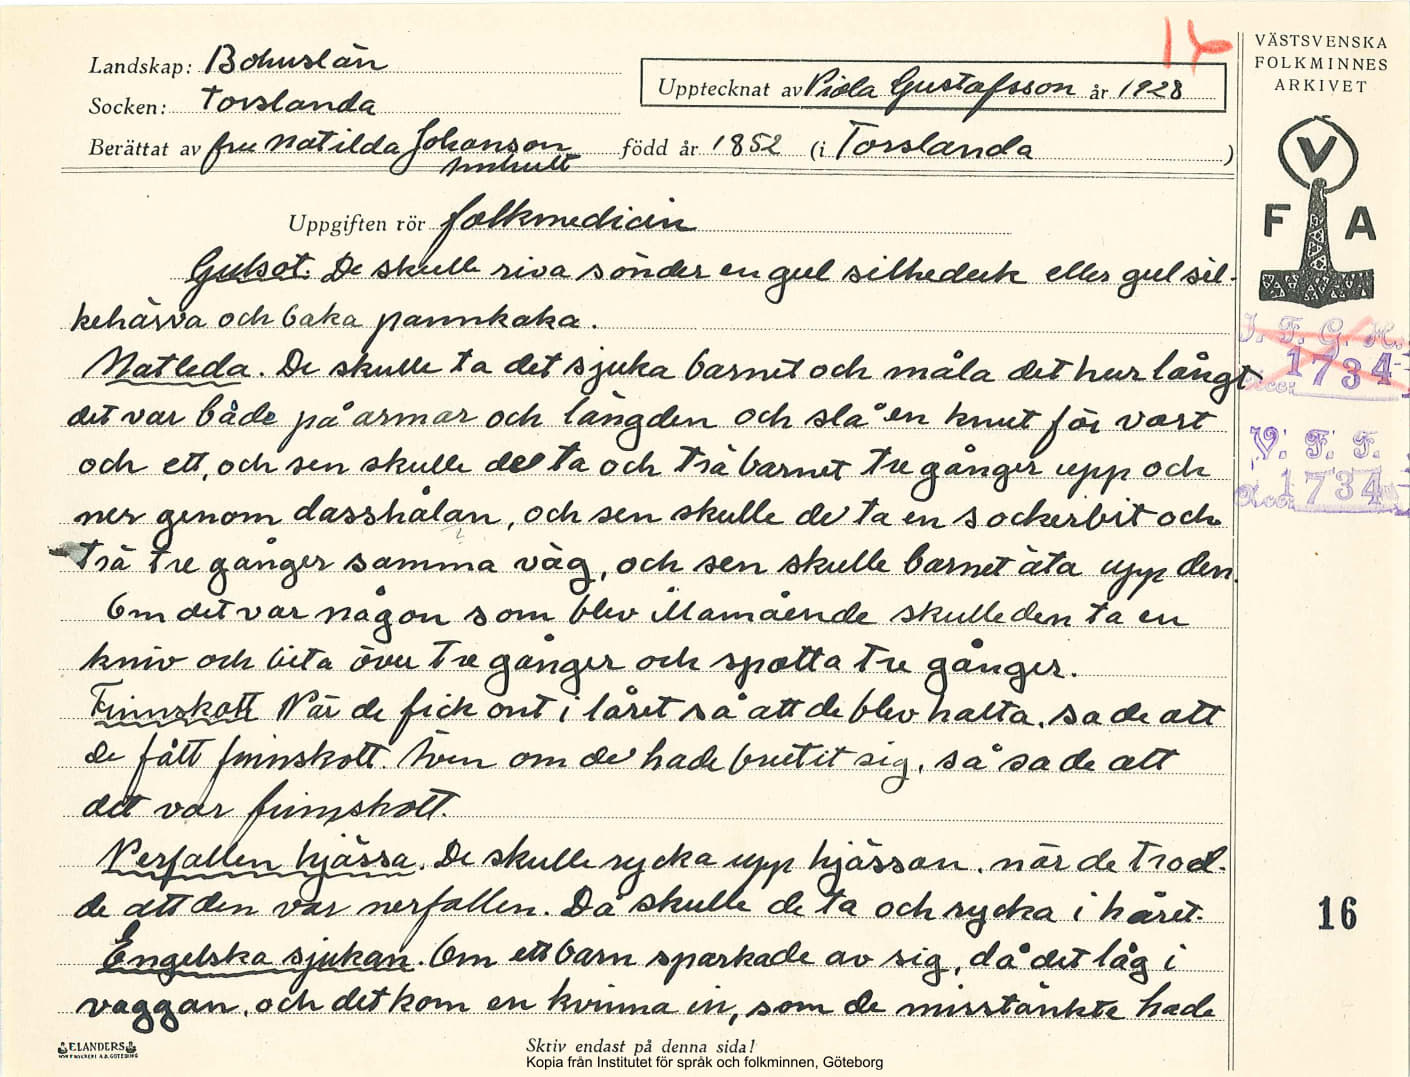 Landskap: Bohuslän
Socken: Torslanda
Berättat av fru Matilda Johanson
född år 1852 (i Torslanda )
Upptecknat av Viola Gustafsson år 1928
VÄSTSVENSKA
FOLKMINNES
ARKIVET
V
F A
Uppgiften rör folkmedicin
Gulsot. De skulle riva sönder en gul silkeduk eller gul sil-
kehärva och baka pannkaka.
Matleda. De skulle ta det sjuka barnet och måla det hur långt
det var både på armar och längden och slå en knut för vart
och ett, och sen skulle de ta och trä barnet tre gånger upp och
ner genom dasshålan, och sen skulle de ta en sockerbit och
trä tre gånger samma väg, och sen skulle barnet äta upp den.
Om det var någon som blev illamående skulle den ta en
kniv och bita över tre gånger och spotta tre gånger.
Finnskott När de fick ont i låret så att de blev halta, sa de att
de fått finnskott. Även om de hade brutit sig, så sa de att
det var finnskott.
Nerfallen hjässa. De skulle rycka upp hjässan, när de trod-
de att den var nerfallen. Då skulle de ta och rycka i håret.
Engelska sjukan. Om ett barn sparkade av sig, då det låg i
vaggan, och det kom en kvinna in, som de misstänkte hade
I. F. G. H.
Acc. 1734
V. F. F.
Acc. 1734
16
ELANDERS
Skriv endast på denna sida!
Kopia från Institutet för språk och folkminnen, Göteborg